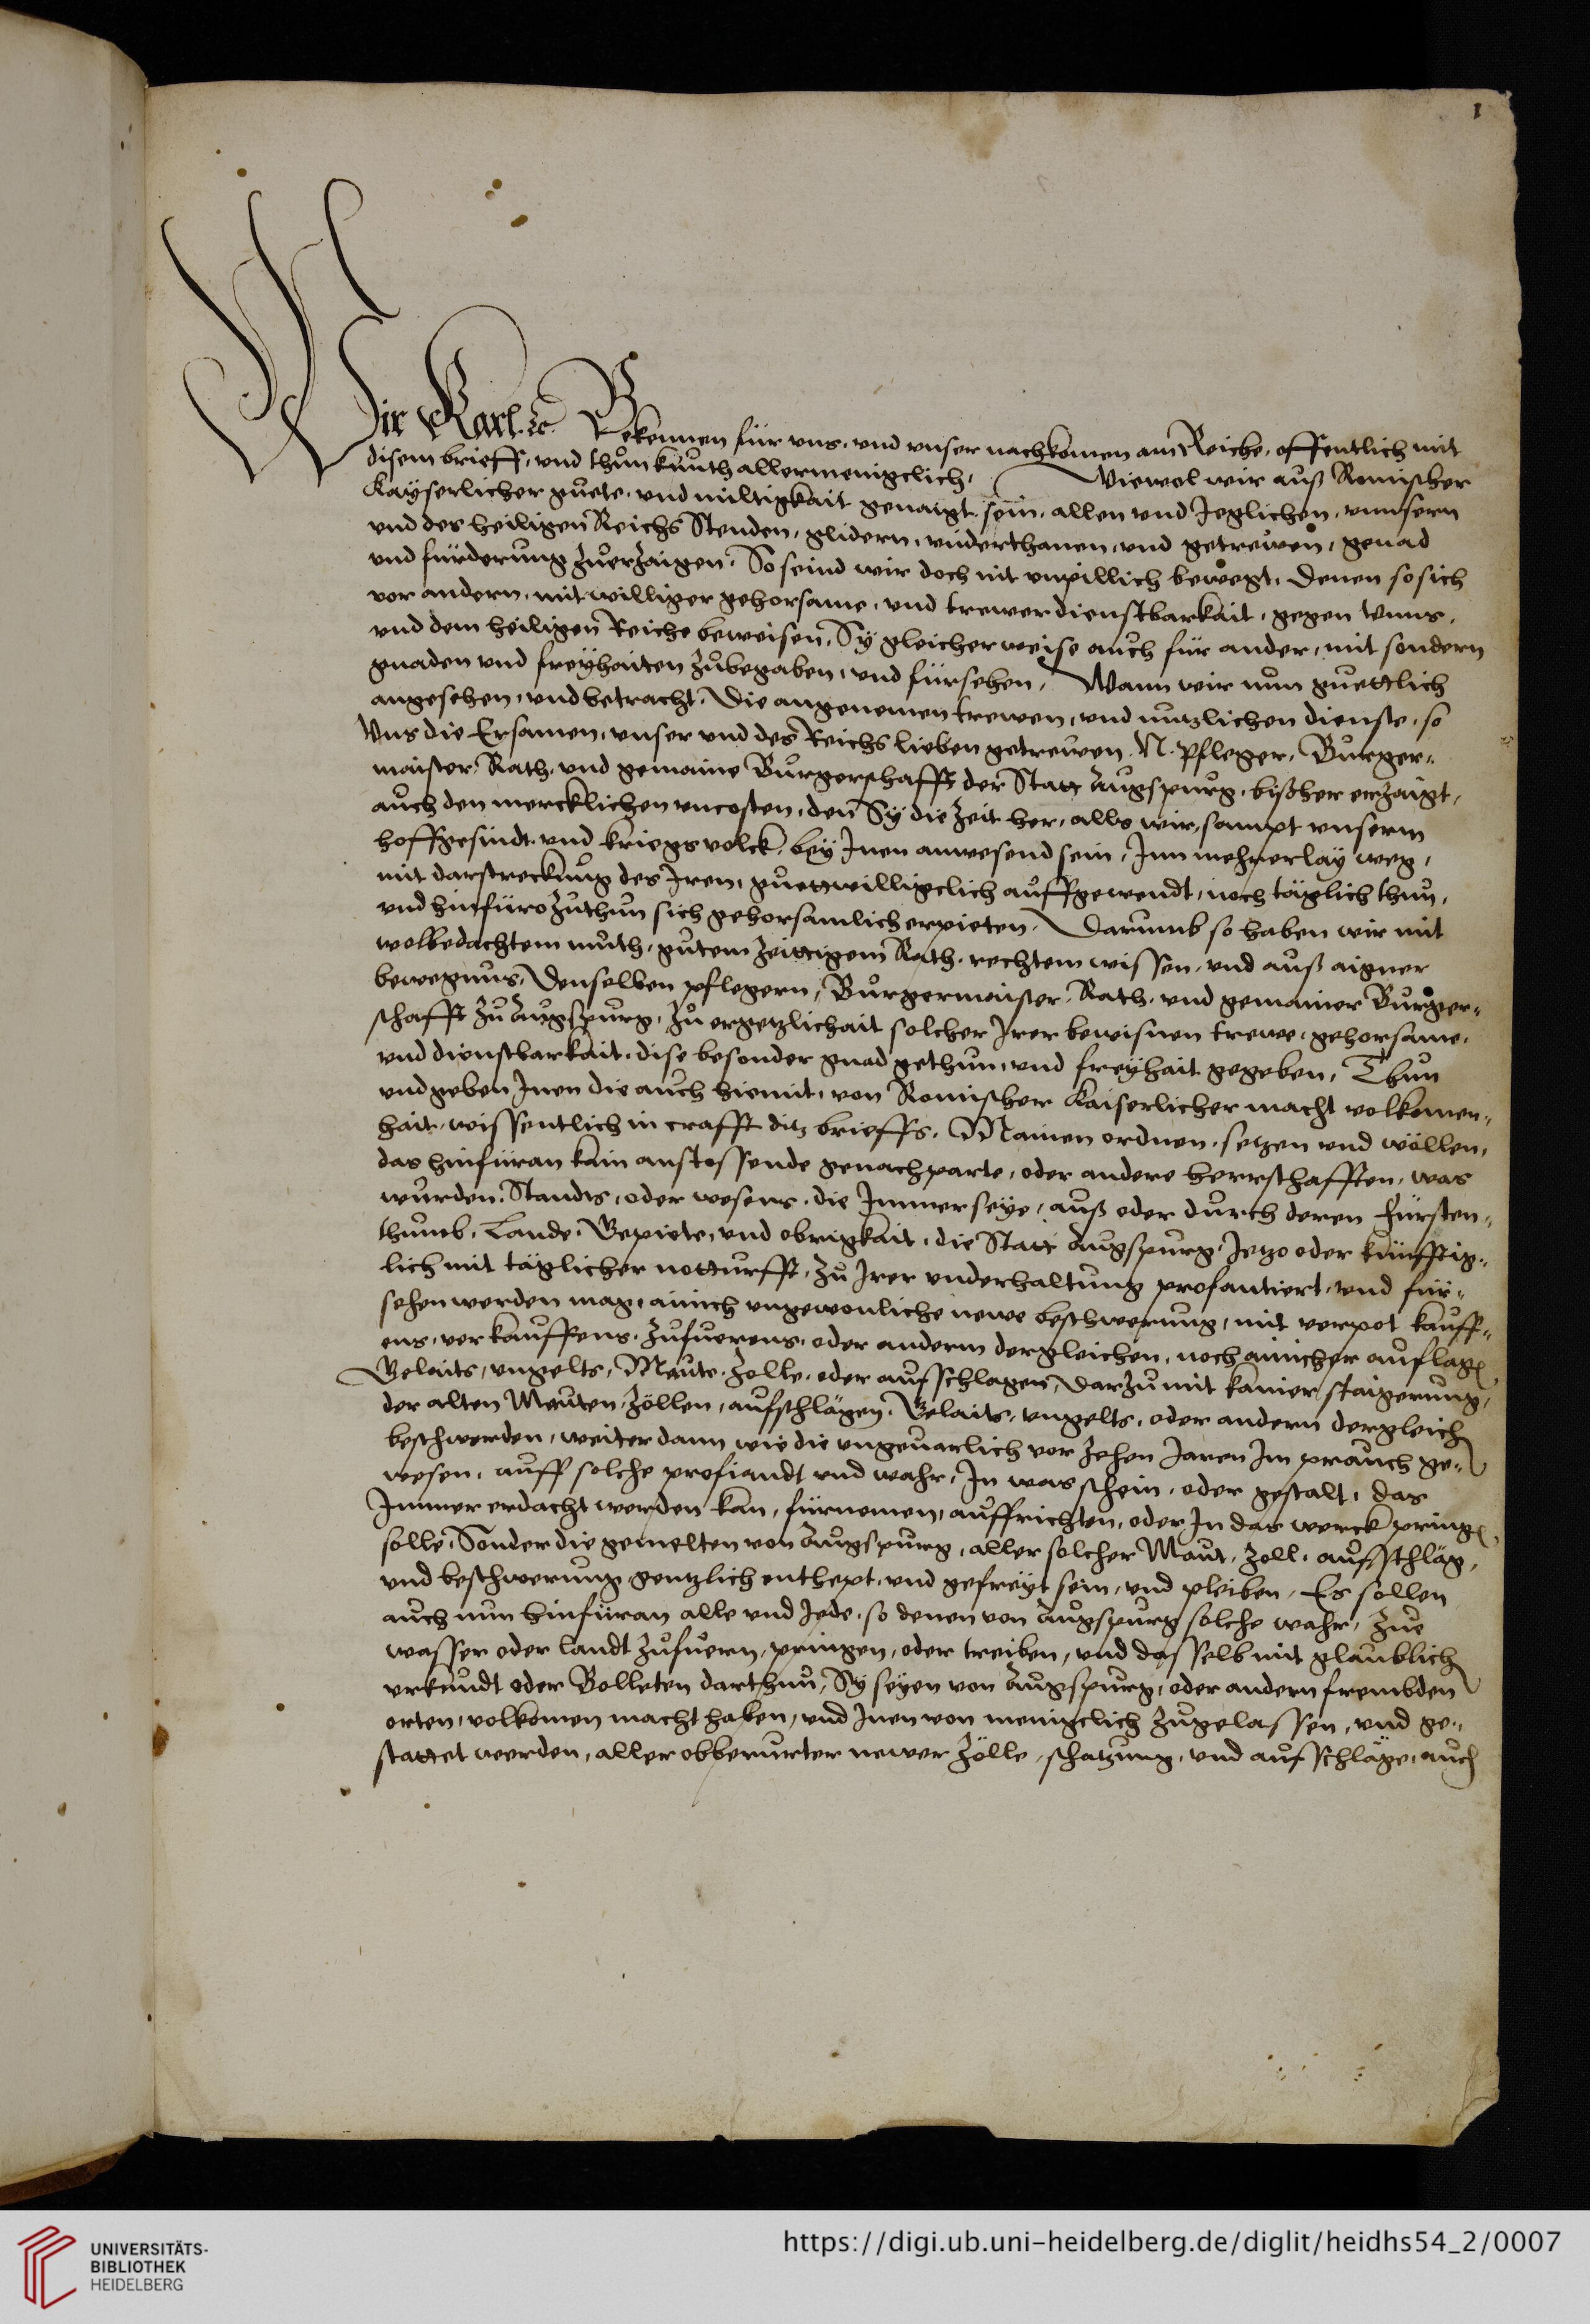 1
Wir Karl. ꝛc. Bekennen für vns, vnd vnser nachkomen am Reiche, offentlich mit
disem brieff, vnd thůn kunth allermenigclich, Wiewol wir auß Romischer
Kayserlicher guete, vnd miltigkait genaigt sein, allen vnd Jeglichen, vnnsern
vnd des heiligen Reichs Stenden, glidern, vnderthanen, vnd getrewen, genad
vnd fürderung zuerzaigen. So seind wir doch nit vnpillich bewegt, denen so sich
vor andern, mit williger gehorsame, vnd trewer dienstbarkait, gegen Vnns,
vnd dem heiligen Reiche beweisen, Sy gleicher weise auch für ander, mit sondern
gnaden vnd freyhaiten zůbegaben, vnd fürsehen, Wann wir nůn guettlich
angesehen, vnd betracht, Die angenemen trewen, vnd nutzlichen dienste, so
Vns die Ersamen, vnser vnd des Reichs lieben getrewen N. Pfleger, Burger-
maister, Rath, vnd gemaine Burgerschafft der Statt Augspurg, bißher erzaigt,
auch den mercklichen vncosten, den Sy die Zeit her, alls wir, sampt vnserm
hoffgesindt vnd kriegsvolck, bey Inen anwesend sein, Inn mehrerlay weg,
mit darstreckung des Iren, guettwilligclich auffgewendt, noch täglich thun,
vnd hinfüro zuthun sich gehorsamlich erpieten. Darumb so haben wir mit
wolbedachtem muth, gutem zeittigem Rath, rechtem wissen, vnd auß aigner
bewegnus, Denselben pflegern, Burgermaister, Rath, vnd gemainer Burger-
schafft zu Augspurg, zu ergetzlichait solcher Irer bewisnen trewe, gehorsame,
vnd dienstbarkait, dise besonder gnad gethun, vnd freyhait gegeben, Thun
vnd geben Inen die auch hiemit, von Romischer Kaiserlicher macht volkomen-
hait, wissentlich in crafft ditz brieffs, Mainen ordnen, setzen vnd wöllen,
das hinfüran kain anstossende genachparte, oder andere herrschafften, was
wurden, Standts, oder wesens, die Immer seye, auß oder durch deren Fürsten-
thumb, Lande, Gepiete, vnd obrigkait, die Statt Augspurg, Jetzo oder künfftig-
lich mit täglicher notturfft, zu Irer vnderhaltung profantiert, vnd für-
sehen werden mag, ainich vngewonliche newe beschwerung, mit verpot kauff-
ens, verkauffens, zufuerens, oder anderm dergleichen, noch ainicher auflag
Gelaits, vngelts, Maute, Zolle, oder aufschlagen, darzu mit kainer staigerung,
der alten Mauten, Zöllen, aufschlägen, Gelaits, vngelts, oder andern dergleich
beschwerden, weiter dann wie die vngeuarlich vor zehen Jaren Im prauch ge-
wesen, auff solche profiandt vnd wahr, In was schein, oder gestalt, das
Immer erdacht werden kan, fürnemen, auffrichten, oder In das werck pringen
solle, Sonder die gemelten von Augspurg, aller solcher Maut, Zoll, aufschläg,
vnd beschwerung gentzlich enthept, vnd gefreyt sein, vnd pleiben, Es sollen
auch nun hinfüran alle vnd Jede, so denen von Augspurg solche wahr, zue
wasser oder landt zufuern, pringen, oder treiben, vnd dasselb mit glaublich
vrkundt oder Bolleten darthun, Sy seyen von Augspurg, oder andern frembden
orten, volkomen macht haben, vnd Inen von menigclich zugelassen, vnd ge-
stattet werden, aller obberurter newer Zölle, schatzung, vnd aufschläge, auch
UNIVERSITÄTS-
BIBLIOTHEK
HEIDELBERG
https://digi.ub.uni-heidelberg.de/diglit/heidhs54_2/0007